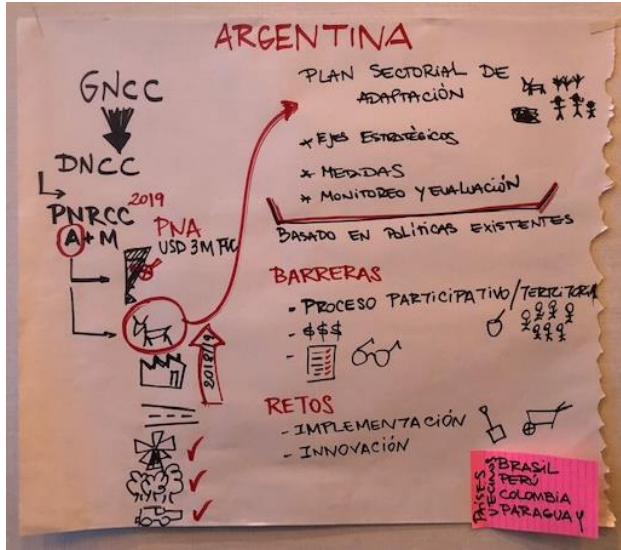 ARGENTINA
GNCC
DNCC
PNRCC
A + M
2019
PNA
USD 3M FVC
2018/19
PLAN SECTORIAL DE
ADAPTACIÓN
* EJES ESTRATÉGICOS
* MEDIDAS
* MONITOREO Y EVALUACIÓN
BASADO EN POLÍTICAS EXISTENTES
BARRERAS
- PROCESO PARTICIPATIVO/TERRITORIA
- $$$
-
RETOS
- IMPLEMENTACIÓN
- INNOVACIÓN
PAÍSES
VECINOS
BRASIL
PERÚ
COLOMBIA
PARAGUAY